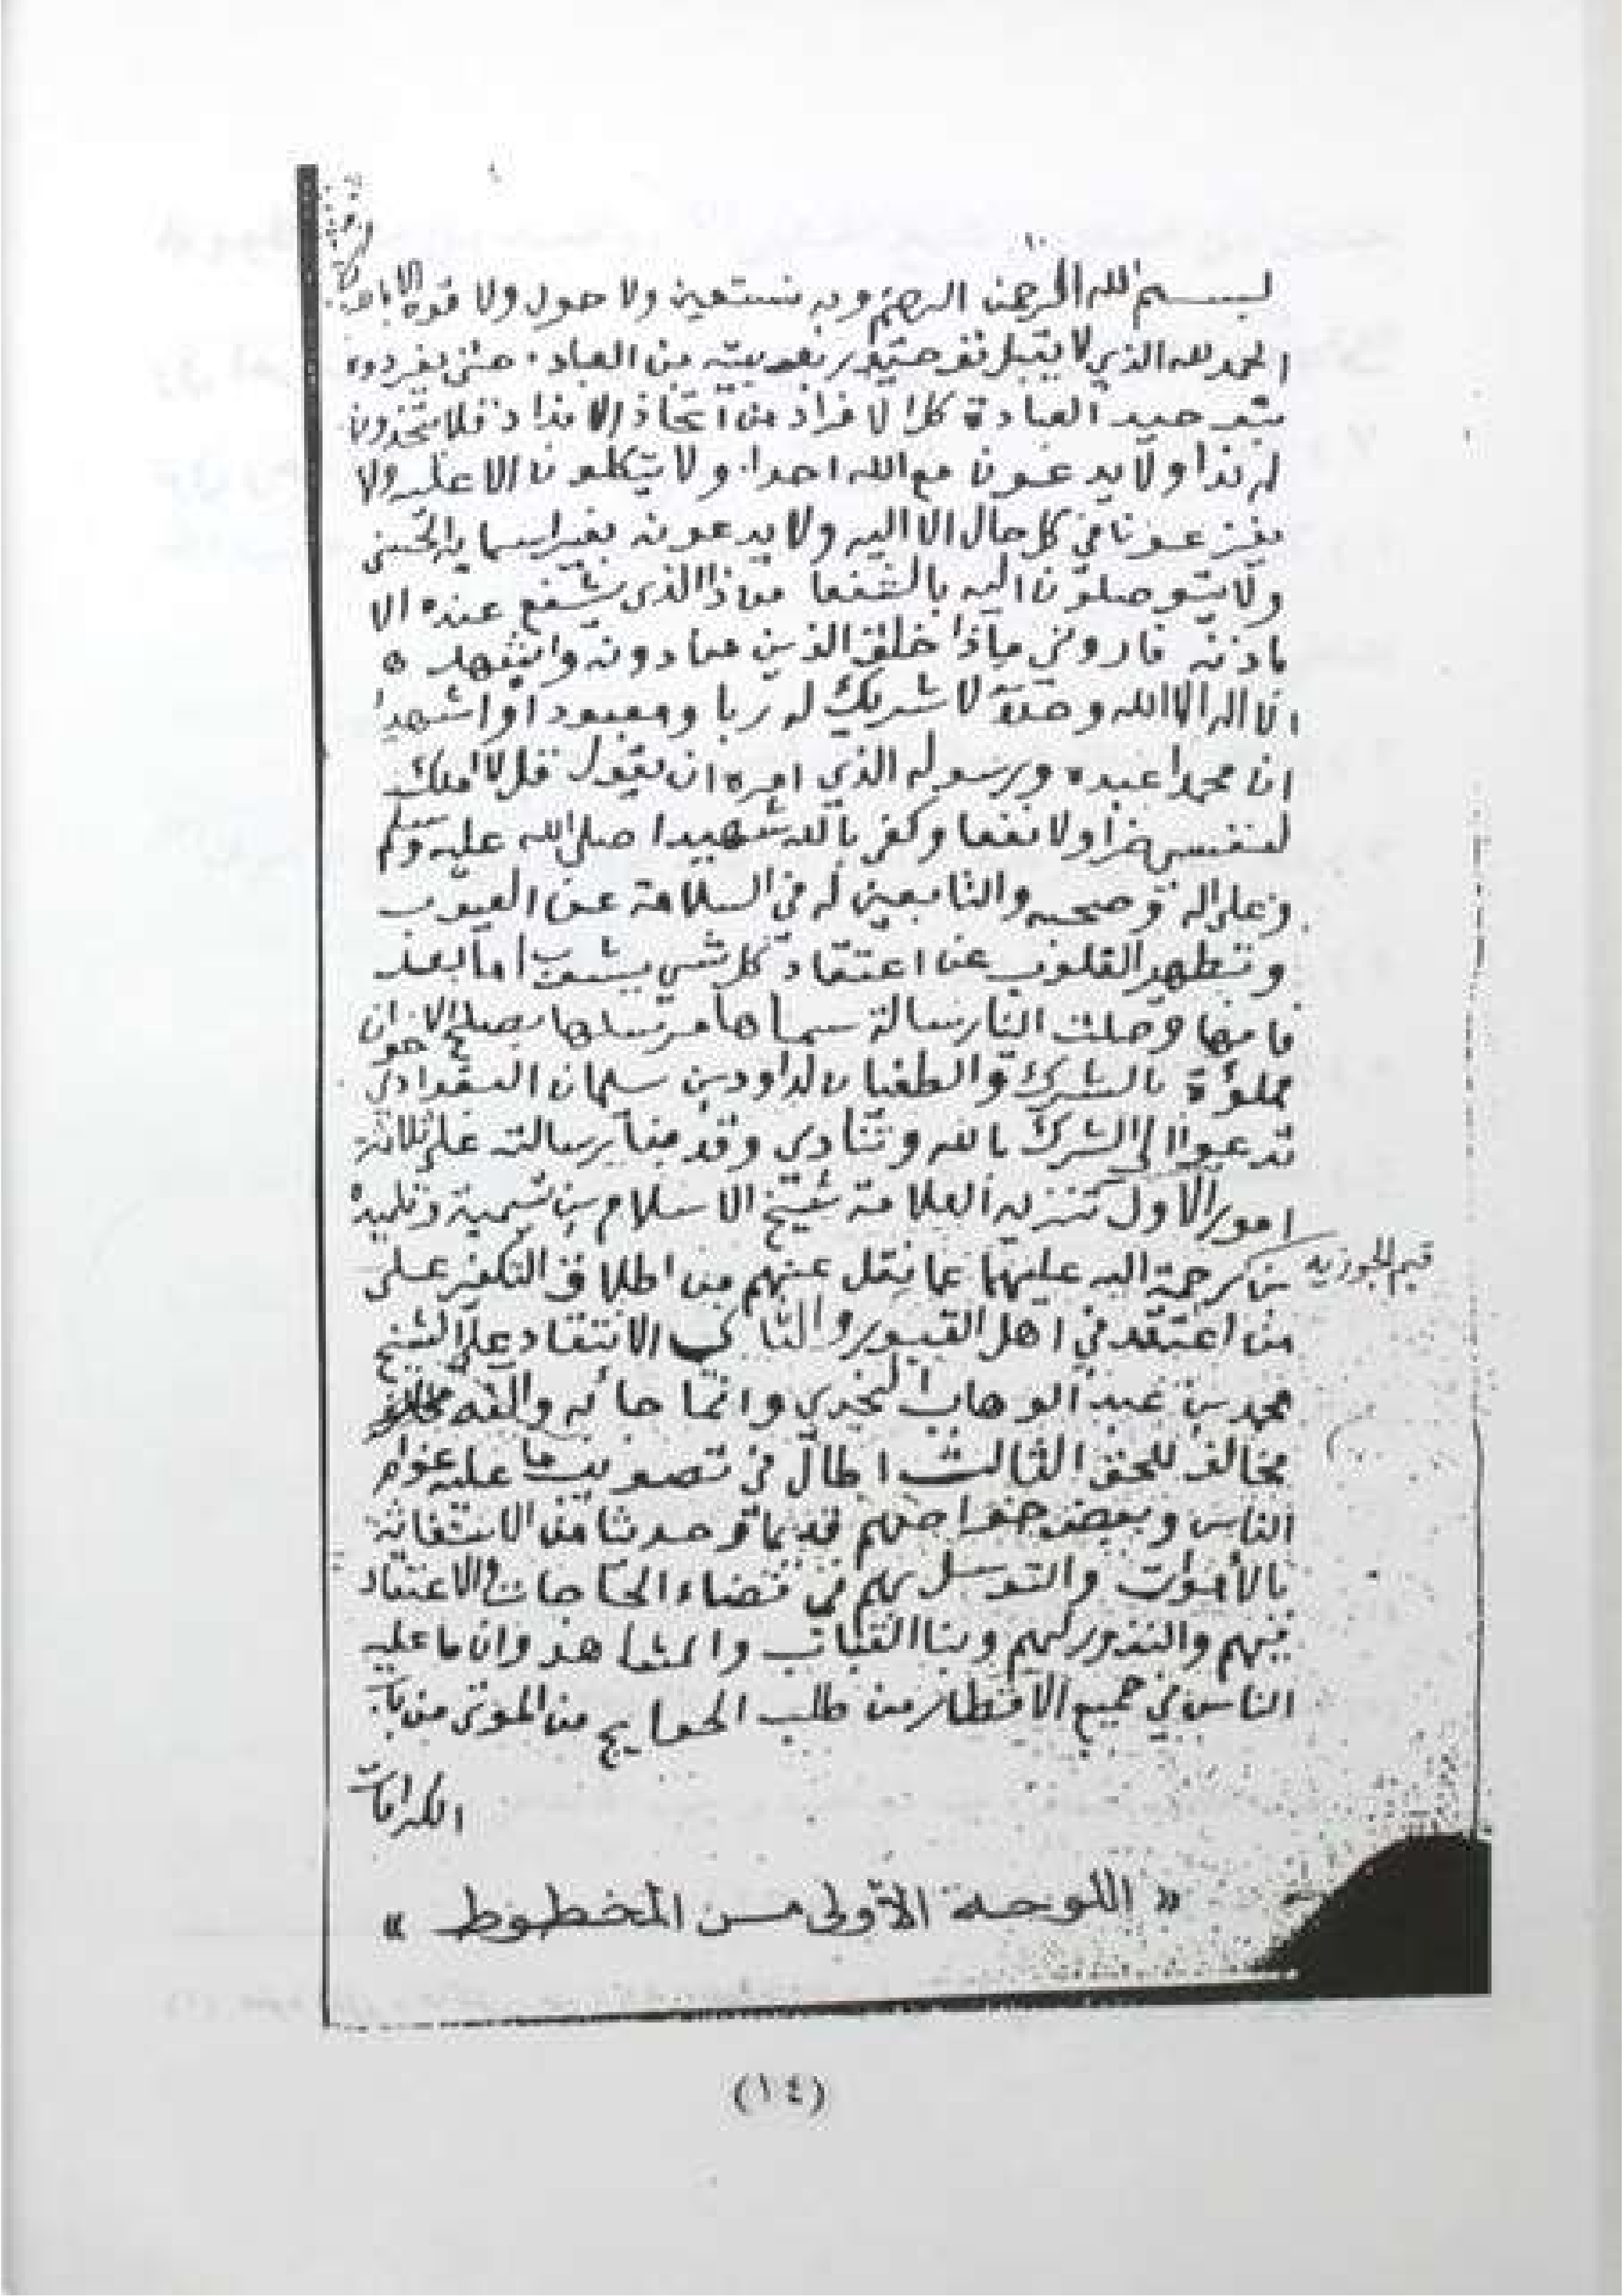 بسم الله الرحمن الرحيم وبه نستعين ولا حول ولا قوة الا بالله
الحمد لله الذي لا يقبل توحيد ربوبيته من العباد حتى يفردوه
بتوحيد العبادة كل الافراد من اتخاذ الانداد فلا يتخذون
له ندا ولا يدعون مع الله احدا ولا يتكلون الا عليه ولا
يفزعون في كل حال الا اليه ولا يدعونه بغير اسمايه الحسنى
ولا يتوصلون اليه بالشفعا من ذا الذى يشفع عنده الا
باذنه فاروني ماذا خلق الذين من دونه واشهد ه
ان لا اله الا الله وحده لا شريك له ربا ومعبودا واشهد
ان محمدا عبده ورسوله الذي امره ان يقول قل لا املك
لنفسي ضرا ولا نفعا وكفى بالله شهيدا صلى الله عليه وسلم
وعلى اله وصحبه والتابعين له في السلامة عن العيوب
وتطهير القلوب عن اعتقاد كل شي يشوب اما بعد
فانها وصلت الينا رسالة سماها مرسلها بصلح الاخوان
مملؤة بالشرك والطغيان لداود بن سلمان البغدادي
تدعوا الى الشرك بالله وتنادي وقد بنا رسالته على ثلاثة
امور الاول تنزيه العلامة شيخ الاسلام بن تيمية وتلميذه
بن رحمة الله عليهما عما نقل عنهم من اطلاق التكفير على
قيم الجوزيه
من اعتقد في اهل القبور والثاني الانتقاد على الشيخ
محمد بن عبد الوهاب النجدي وانما جا به والفه
مخالف للحق الثالث اطال في تصويب ما عليه عوام
الناس وبعض خواصهم قديما وحديثا من الاستغاثة
بالأموات والتوسل بهم في قضاء الحاجات والاعتقاد
فيهم والنذور لهم وبنا القباب والمشاهد وان ما عليه
الناس في جميع الاقطار من طلب الحوايج من الموتى من باب
الكرامات
« اللوحة الأولى من المخطوط »
(١٤)